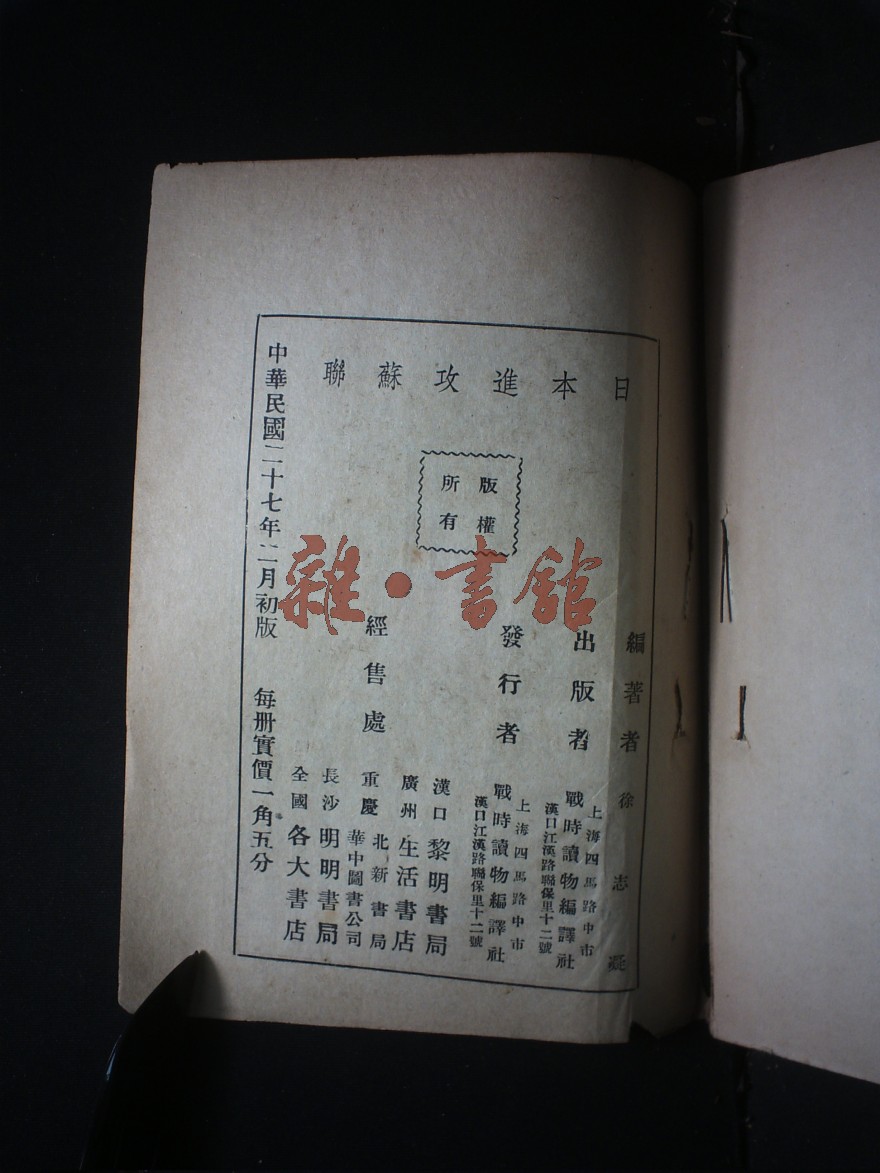 日本進攻蘇聯
版權
所有
編著者 徐志凝
出版者
上海四馬路中市
戰時讀物編譯社
漢口江漢路聯保里十二號
發行者
上海四馬路中市
戰時讀物編譯社
漢口江漢路聯保里十二號
經售處
漢口 黎明書局
廣州 生活書店
重慶 北新書局
華中圖書公司
長沙 明明書局
全國 各大書店
中華民國二十七年二月初版 每册實價一角五分
雜·書館